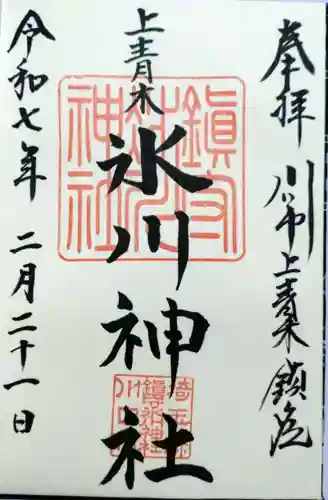 奉拝 川口市上青木鎮座
上青木
氷川神社
令和七年 二月二十一日
鎮守氷川神社
埼玉県
鎮守氷川神社
川口市